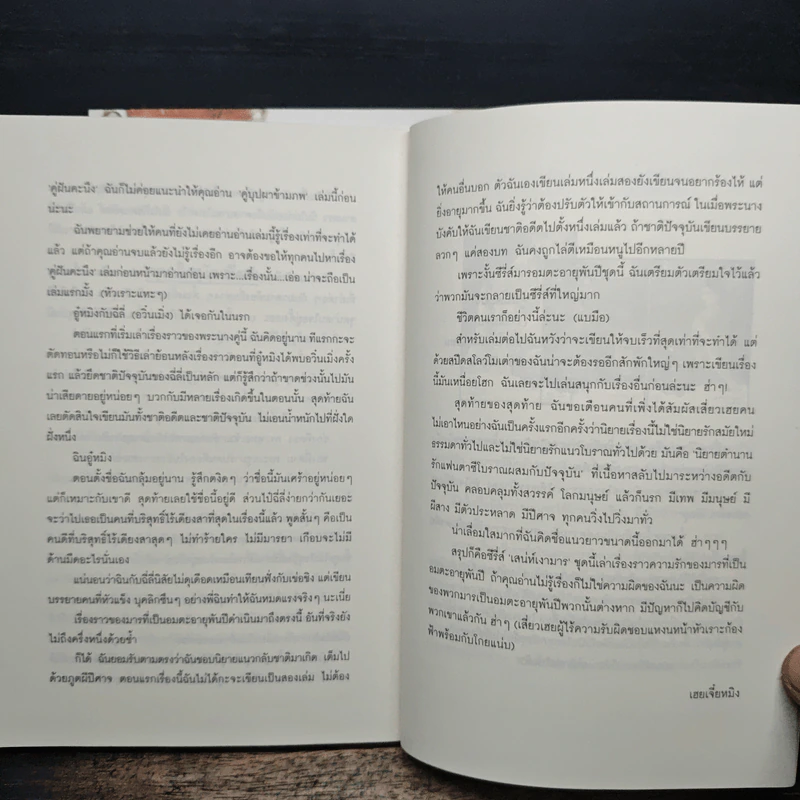 'คู่ฝันคะนึง' ฉันก็ไม่ค่อยแนะนำให้คุณอ่าน 'คู่บุปผาข้ามภพ' เล่มนี้ก่อน
น่ะนะ
ฉันพยายามช่วยให้คนที่ยังไม่เคยอ่านอ่านเล่มนี้รู้เรื่องเท่าที่จะทำได้
แล้ว แต่ถ้าคุณอ่านจบแล้วยังไม่รู้เรื่องอีก อาจต้องขอให้ทุกคนไปหาเรื่อง
'คู่ฝันคะนึง' เล่มก่อนหน้ามาอ่านก่อน เพราะ...เรื่องนั้น...เอ่อ น่าจะถือเป็น
เล่มแรกมั้ง (หัวเราะแหะๆ)
อู๋หมิงกับฉีลี่ (อวิ๋นเมิ่ง) ได้เจอกันในนรก
ตอนแรกที่เริ่มเล่าเรื่องราวของพระนางคู่นี้ ฉันคิดอยู่นาน ทีแรกกะจะ
ตัดทอนหรือไม่ก็ใช้วิธีเล่าย้อนหลังเรื่องราวตอนที่อู๋หมิงได้พบอวิ๋นเมิ่งครั้ง
แรก แล้วยึดชาติปัจจุบันของฉีลี่เป็นหลัก แต่ก็รู้สึกว่าถ้าขาดช่วงนั้นไปมัน
น่าเสียดายอยู่หน่อยๆ บวกกับมีหลายเรื่องเกิดขึ้นในตอนนั้น สุดท้ายฉัน
เลยตัดสินใจเขียนมันทั้งชาติอดีตและชาติปัจจุบัน ไม่เอนน้ำหนักไปที่ฝั่งใด
ฝั่งหนึ่ง
ฉินอู๋หมิง
ตอนตั้งชื่อฉันกลุ้มอยู่นาน รู้สึกตงิดๆ ว่าชื่อนี้มันเศร้าอยู่หน่อยๆ
แต่ก็เหมาะกับเขาดี สุดท้ายเลยใช้ชื่อนี้อยู่ดี ส่วนไป๋ฉีลี่ง่ายกว่ากันเยอะ
จะว่าไปเธอเป็นคนที่บริสุทธิ์ไร้เดียงสาที่สุดในเรื่องนี้แล้ว พูดสั้นๆ คือเป็น
คนดีที่บริสุทธิ์ไร้เดียงสาสุดๆ ไม่ทำร้ายใคร ไม่มีมารยา เกือบจะไม่มี
ด้านมืดอะไรนั่นเอง
แน่นอนว่าฉินกับฉีลี่นิสัยไม่ดุเดือดเหมือนเทียนฟั่งกับเซ่อชิง แต่เขียน
บรรยายคนที่หัวแข็ง บุคลิกขึ้นๆ อย่างพี่ฉินทำให้ฉันหมดแรงจริงๆ นะเนี่ย
เรื่องราวของมารที่เป็นอมตะอายุพันปีดำเนินมาถึงตรงนี้ อันที่จริงยัง
ไม่ถึงครึ่งหนึ่งด้วยซ้ำ
ก็ได้ ฉันยอมรับตามตรงว่าฉันชอบนิยายแนวกลับชาติมาเกิด เต็มไป
ด้วยภูตผีปีศาจ ตอนแรกเรื่องนี้ฉันไม่ได้กะจะเขียนเป็นสองเล่ม ไม่ต้อง
ให้คนอื่นบอก ตัวฉันเองเขียนเล่มหนึ่งเล่มสองยังเขียนจนอยากร้องไห้ แต่
ยิ่งอายุมากขึ้น ฉันยิ่งรู้ว่าต้องปรับตัวให้เข้ากับสถานการณ์ ในเมื่อพระนาง
บังคับให้ฉันเขียนชาติอดีตไปตั้งหนึ่งเล่มแล้ว ถ้าชาติปัจจุบันเขียนบรรยาย
ลวกๆ แค่สองบท ฉันคงถูกไล่ตีเหมือนหนูไปอีกหลายปี
เพราะงั้นซีรี่ส์มารอมตะอายุพันปีชุดนี้ ฉันเตรียมตัวเตรียมใจไว้แล้ว
ว่าพวกมันจะกลายเป็นซีรี่ส์ที่ใหญ่มาก
ชีวิตคนเราก็อย่างนี้ล่ะนะ (แบมือ)
สำหรับเล่มต่อไปฉันหวังว่าจะเขียนให้จบเร็วที่สุดเท่าที่จะทำได้ แต่
ด้วยสปีดสโลว์โมเต่าของฉันน่าจะต้องรออีกสักพักใหญ่ๆ เพราะเขียนเรื่อง
นี้มันเหนื่อยโฮก ฉันเลยจะไปเล่นสนุกกับเรื่องอื่นก่อนล่ะนะ ฮ่าๆ!
สุดท้ายของสุดท้าย ฉันขอเตือนคนที่เพิ่งได้สัมผัสเสี่ยวเฮยคน
ไม่เอาไหนอย่างฉันเป็นครั้งแรกอีกครั้งว่านิยายเรื่องนี้ไม่ใช่นิยายรักสมัยใหม่
ธรรมดาทั่วไปและไม่ใช่นิยายรักแนวโบราณทั่วไปด้วย มันคือ 'นิยายตำนาน
รักแฟนตาซีโบราณผสมกับปัจจุบัน' ที่เนื้อหาสลับไปมาระหว่างอดีตกับ
ปัจจุบัน คลอบคลุมทั้งสวรรค์ โลกมนุษย์ แล้วก็นรก มีเทพ มีมนุษย์ มี
ผีสาง มีตัวประหลาด มีปีศาจ ทุกคนวิ่งไปวิ่งมาทั่ว
น่าเลื่อมใสมากที่ฉันคิดชื่อแนวยาวขนาดนี้ออกมาได้ ฮ่าๆๆๆ
สรุปก็คือซีรี่ส์ 'เสน่ห์เงามาร' ชุดนี้เล่าเรื่องราวความรักของมารที่เป็น
อมตะอายุพันปี ถ้าคุณอ่านไม่รู้เรื่องก็ไม่ใช่ความผิดของฉันนะ เป็นความผิด
ของพวกมารเป็นอมตะอายุพันปีพวกนั้นต่างหาก มีปัญหาก็ไปคิดบัญชีกับ
พวกเขาแล้วกัน ฮ่าๆ (เสี่ยวเฮยผู้ไร้ความรับผิดชอบแหงนหน้าหัวเราะก้อง
ฟ้าพร้อมกับโกยแน่บ)
เฮยเจี๋ยหมิง